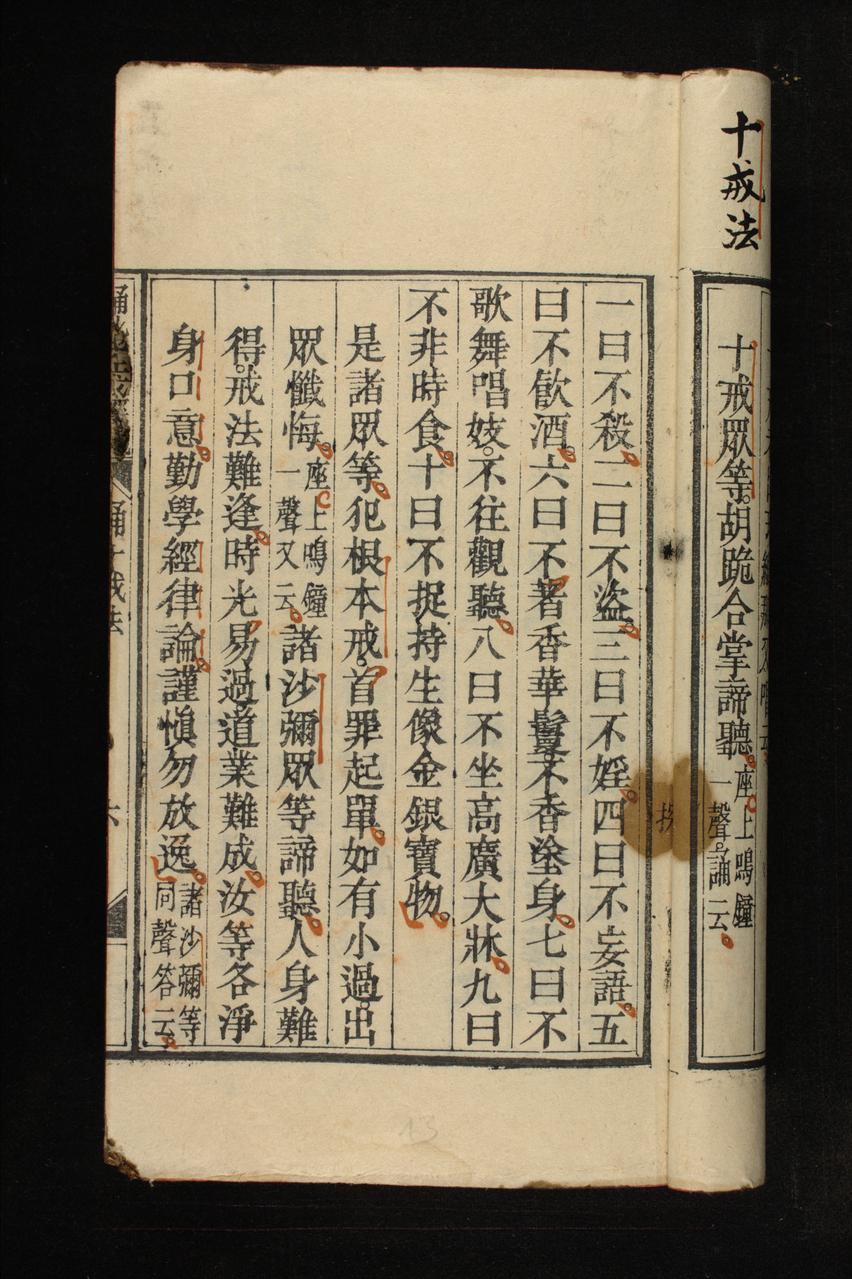 十戒法
十戒眾等。胡跪合掌諦聽。座上鳴鐘一聲。誦云。
一曰不殺。二曰不盜。三曰不婬。四曰不妄語。五
曰不飲酒。六曰不著香華鬘。不香塗身。七曰不
歌舞唱妓。不往觀聽。八曰不坐高廣大牀。九曰
不非時食。十曰不捉持生像金銀寶物。
是諸眾等。犯根本戒。首罪起單。如有小過。出
眾懺悔。座上鳴鐘一聲又云。諸沙彌眾等諦聽。人身難
得。戒法難逢。時光易過。道業難成。汝等各淨
身口意。勤學經律論。謹慎勿放逸。諸沙彌等同聲答云。
誦十戒法
六
13